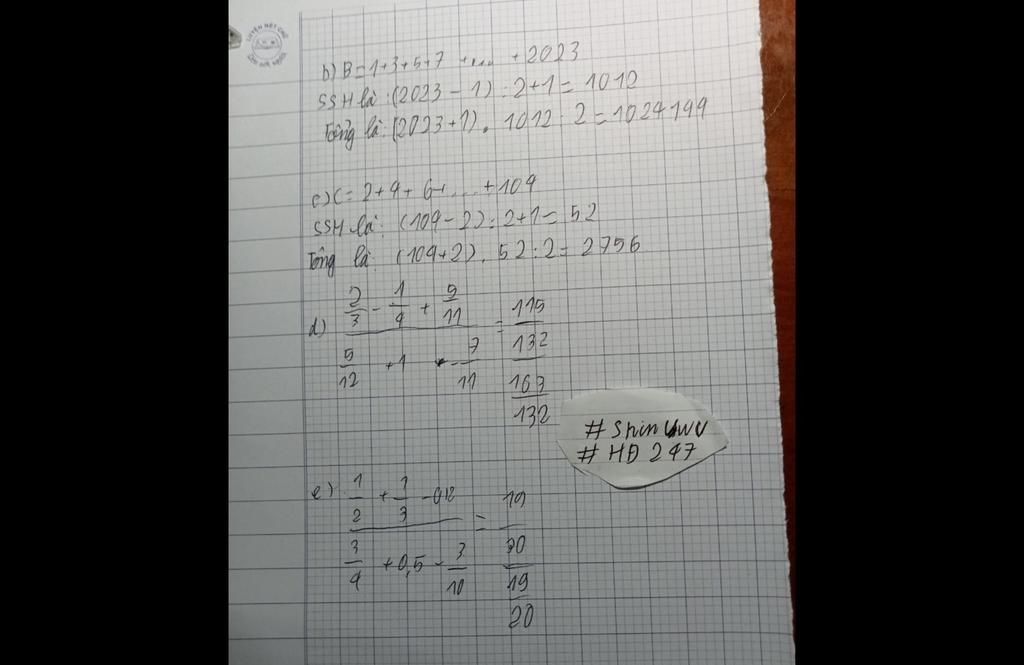 LUYỆN NÉT CHỮ
b) B = 1+3+5+7 + .... + 2023
SSH là: (2023 - 1) : 2+1 = 1012
Tổng là: (2023+1) . 1012 : 2 = 1024144
c) C = 2+4+6+...+104
SSH là: (104-2) : 2+1 = 52
Tổng là: (104+2) . 52 : 2 = 2756
d) 2/3 - 1/4 + 5/11 = 115/132
5/12 + 1 - 7/11 163/132
# Shin UwU
# HD 247
e) 1/2 + 1/3 - 0,12 = 19/30
3/4 + 0,5 - 3/10 19/20